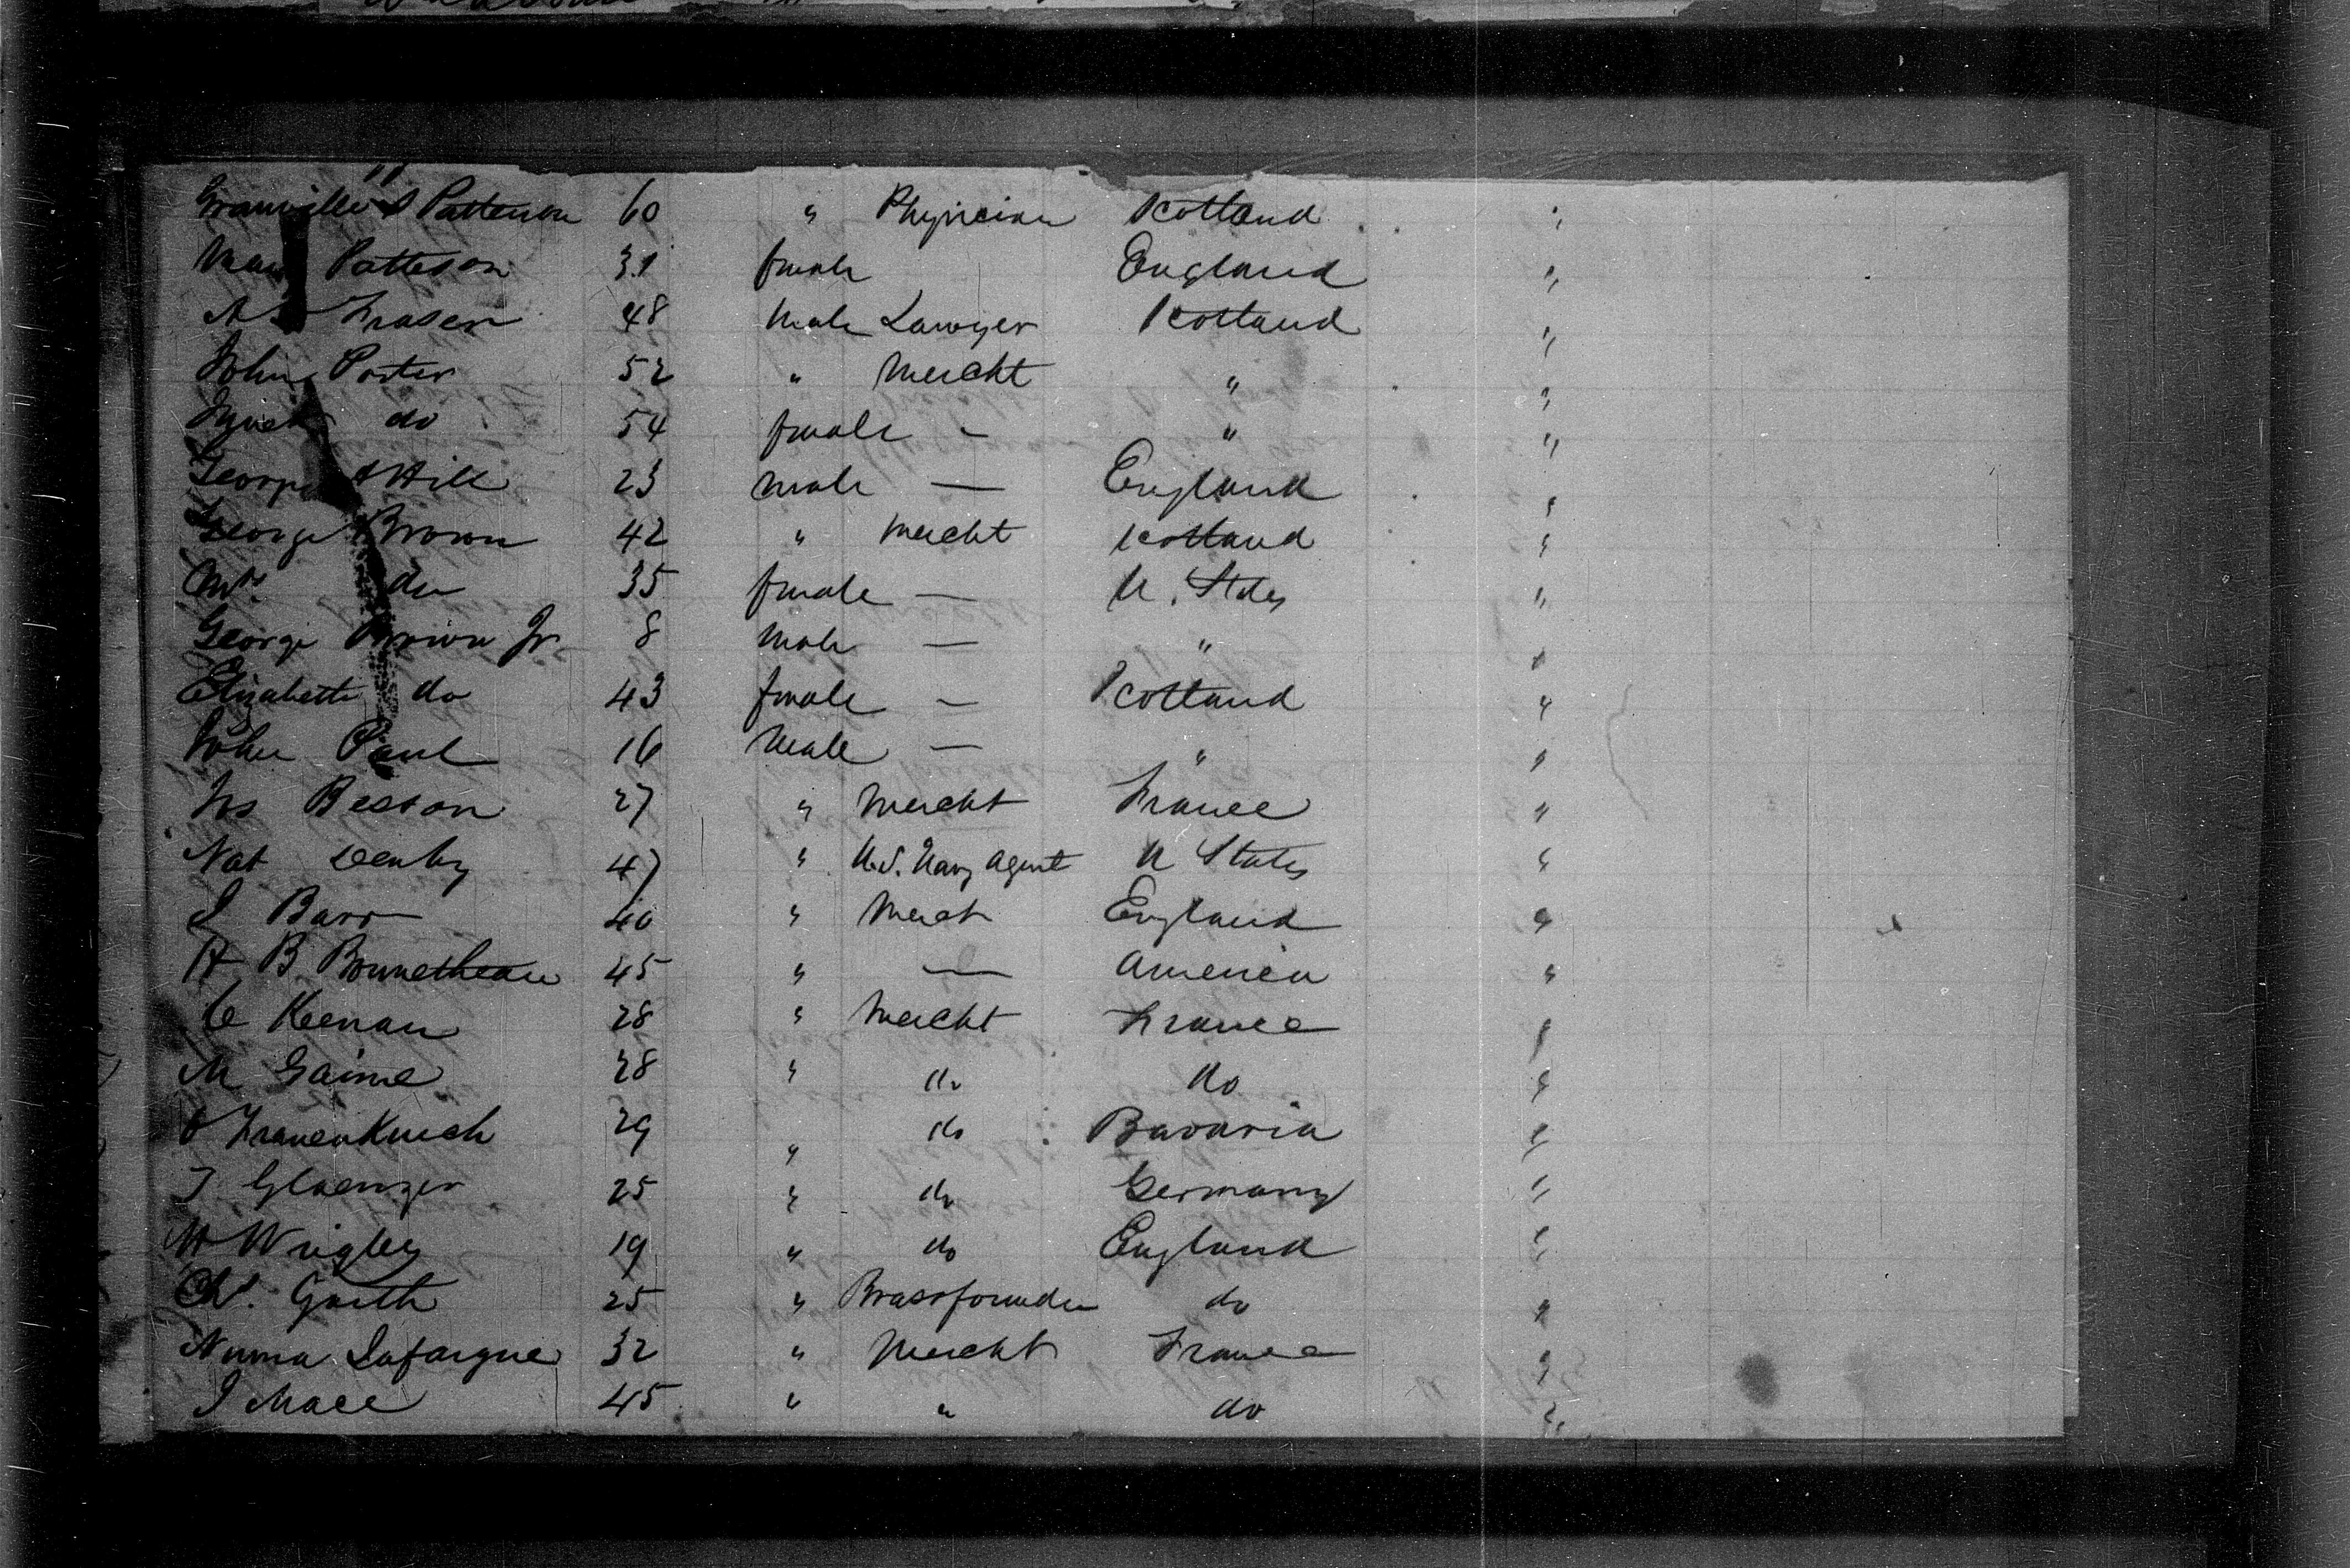 Granville S Patterson 60 " Physician Scotland "
Mary Patteson 31 female England "
Fraser 48 Male Lawyer Scotland "
John Porter 52 " Mercht " "
do 54 female - " "
George A Hill 23 male — England "
George Brown 42 " Mercht Scotland "
Mrs. do 35 female — U. States "
George Brown Jr 8 Male — " "
Elizabeth do 43 female — Scotland "
John Paul 16 Male — " "
Jos Besson 27 " Mercht France "
Nat Denby 47 " U.S. Navy Agent U States "
J Barr 40 " Mercht England "
H B Brunetheau 45 " — America "
C Keenan 28 " Mercht France "
M Gaime 28 " do do "
29 " do Bavaria "
J Glaenzer 25 " do Germany "
H Wrigley 19 " do England "
Chs. Garth 25 " Brassfounder do "
Numa Lafargue 32 " Mercht France "
J Mace 45 " " do "